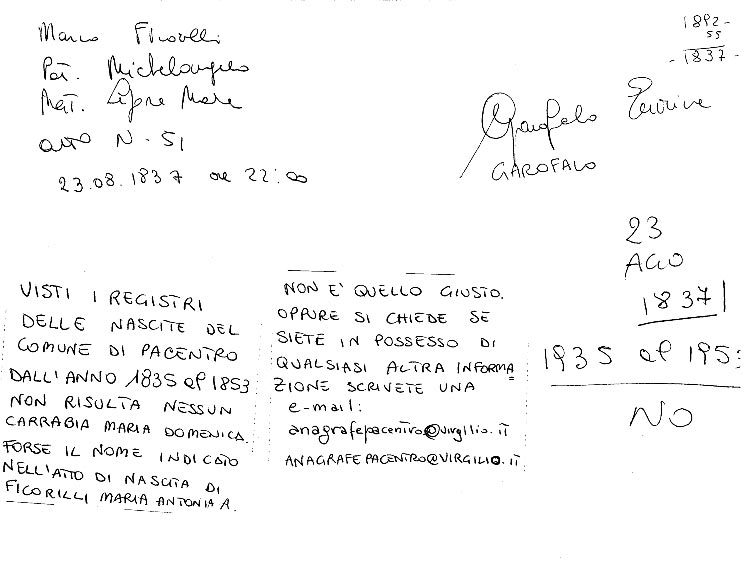 Marco Ficorelli
Pat. Michelangelo
Mat. Lepre Mare
atto N - 51
23.08.1837 ore 22:00
1892 -
55
- 1837 -
Garofalo
GAROFALO
23
AGO
1837
1935 al 1953
NO
VISTI I REGISTRI
DELLE NASCITE DEL
COMUNE DI PACENTRO
DALL'ANNO 1835 al 1853
NON RISULTA NESSUN
CARRABIA MARIA DOMENICA.
FORSE IL NOME INDICATO
NELL'ATTO DI NASCITA DI
FICORILLI MARIA ANTONIA A.
NON E' QUELLO GIUSTO.
OPPURE SI CHIEDE SE
SIETE IN POSSESSO DI
QUALSIASI ALTRA INFORMA
ZIONE SCRIVETE UNA
e-mail:
anagrafepacentro@virgilio.it
ANAGRAFEPACENTRO@VIRGILIO.IT